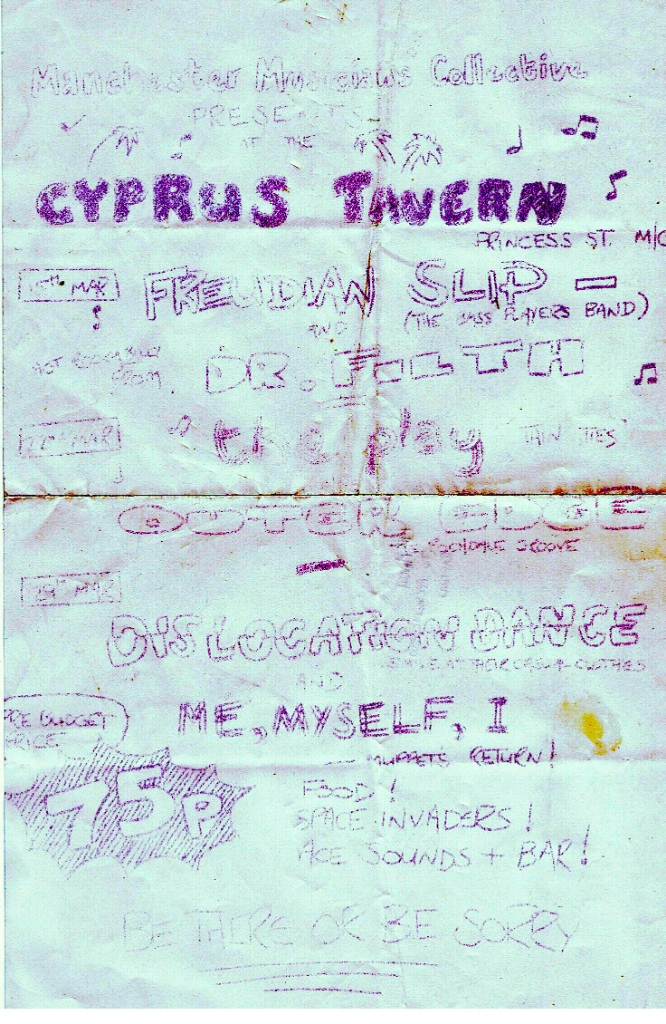 Manchester Musicians Collective
PRESENTS
AT THE
CYPRUS TAVERN
PRINCESS ST. M/C
15TH MAR
FREUDIAN SLIP –
AND
(THE BASS PLAYERS BAND)
FROM
DR. FILTH
MAR
the play
THIN TIES
OUTER EDGE
ROCHDALE GROOVE
MAR
DISLOCATION DANCE
CLOTHES
AND
ME, MYSELF, I
PRE BUDGET
PRICE
MUPPETS RETURN!
75P
FOOD!
SPACE INVADERS!
ACE SOUNDS + BAR!
BE THERE OR BE SORRY